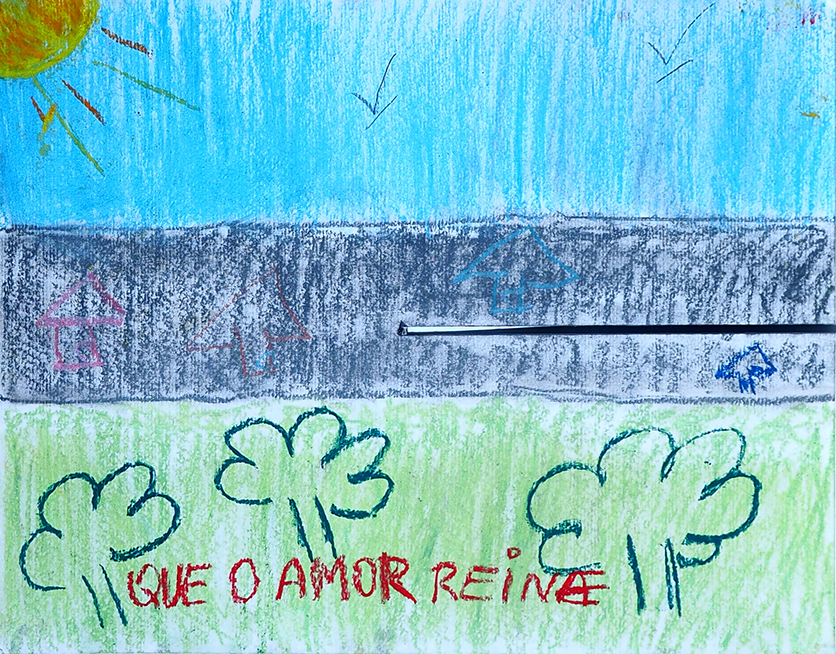 QUE O AMOR REiNE